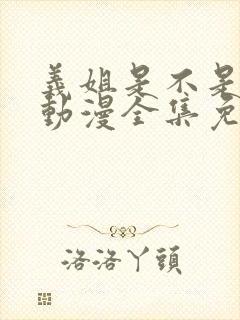 義姐是不是
動漫全集免
洛洛丫頭